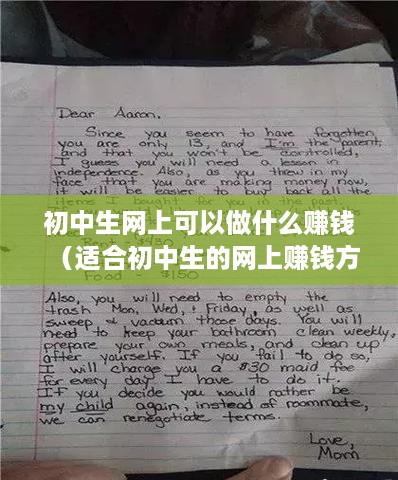 Dear Aaron,
Since you seem to have forgotten
you are only 13, and I'm the parent,
and that you won't be controlled,
I guess you will need a lesson in
independence. Also, as you threw in my
face that you are making money now,
it will be easier to buy back all the
items I bought for you in the past.
初中生网上可以做什么赚钱
（适合初中生的网上赚钱方
Food = $150
Also, you will need to empty the
trash Mon, Wed, + Friday, as well as
sweep + vacuum those days. You will
need to keep your bathroom clean weekly,
prepare your own meals, and clean up
after yourself. If you fail to do so,
I will charge you a $30 maid fee
for every day I have to do it.
If you decide you would rather be
my child again, instead of roommate,
we can renegotiate terms.
Love,
Mom